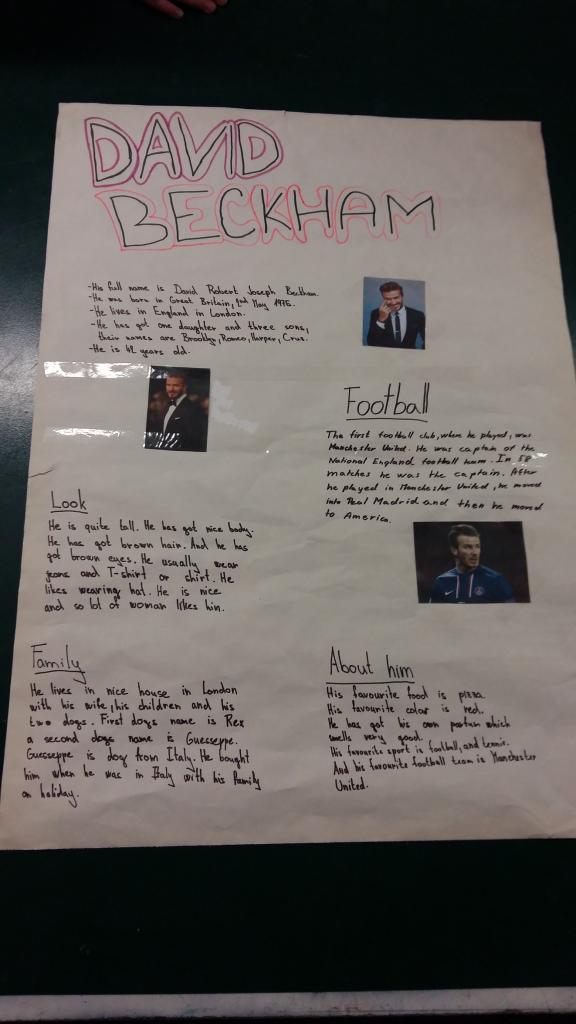 DAVID
BECKHAM
-His full name is David Robert Joseph Beckham.
-He was born in Great Britain, 2nd May 1975.
-He lives in England in London.
-He has got one daughter and three sons,
their names are Brooklyn, Romeo, Harper, Crus.
-He is 42 years old.
Football
The first football club, where he played, was
Manchester United. He was captain of the
National England football team. In 58
matches he was the captain. After
he played in Manchester United, he moved
into Real Madrid and then he moved
to America.
Look
He is quite tall. He has got nice body.
He has got brown hair. And he has
got brown eyes. He usually wear
jeans and T-shirt or shirt. He
likes wearing hat. He is nice
and so lot of woman likes him.
Family
He lives in nice house in London
with his wife, his children and his
two dogs. First dogs name is Rex
a second dogs name is Guesseppe.
Guesseppe is dog from Italy. He bought
him when he was in Italy with his family
on holiday.
About him
His favourite food is pizza.
His favourite color is red.
He has got his own parfum which
smells very good.
His favourite sport is football, and tennis.
And his favourite football team is Manchester
United.